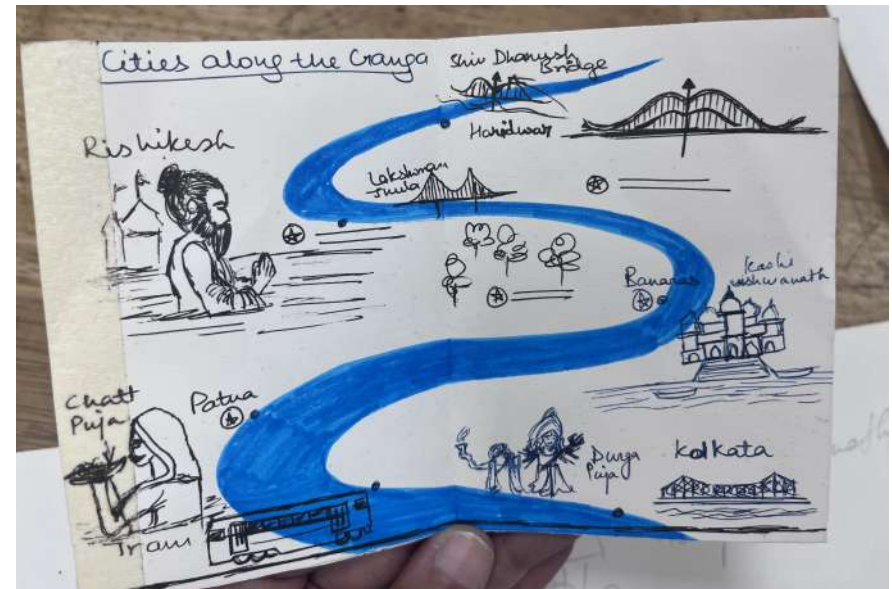 Cities along the Ganga
Shiv Dhanush
Bridge
Haridwar
Rishikesh
Lakshman
Jhula
Banaras
Kashi
vishwanath
Chatt
Puja
Patna
Durga
Puja
Kolkata
Tram